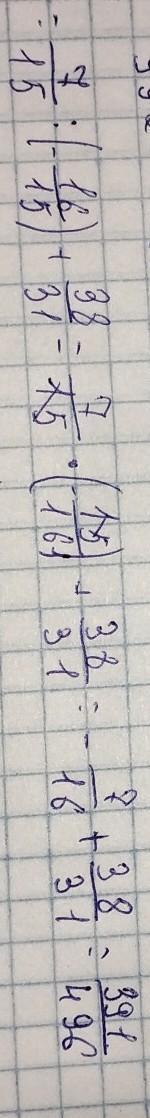 = 7/15 : (-16/15) + 38/31 = 7/15 · (-15/16) + 38/31 = -7/16 + 38/31 = 391/496